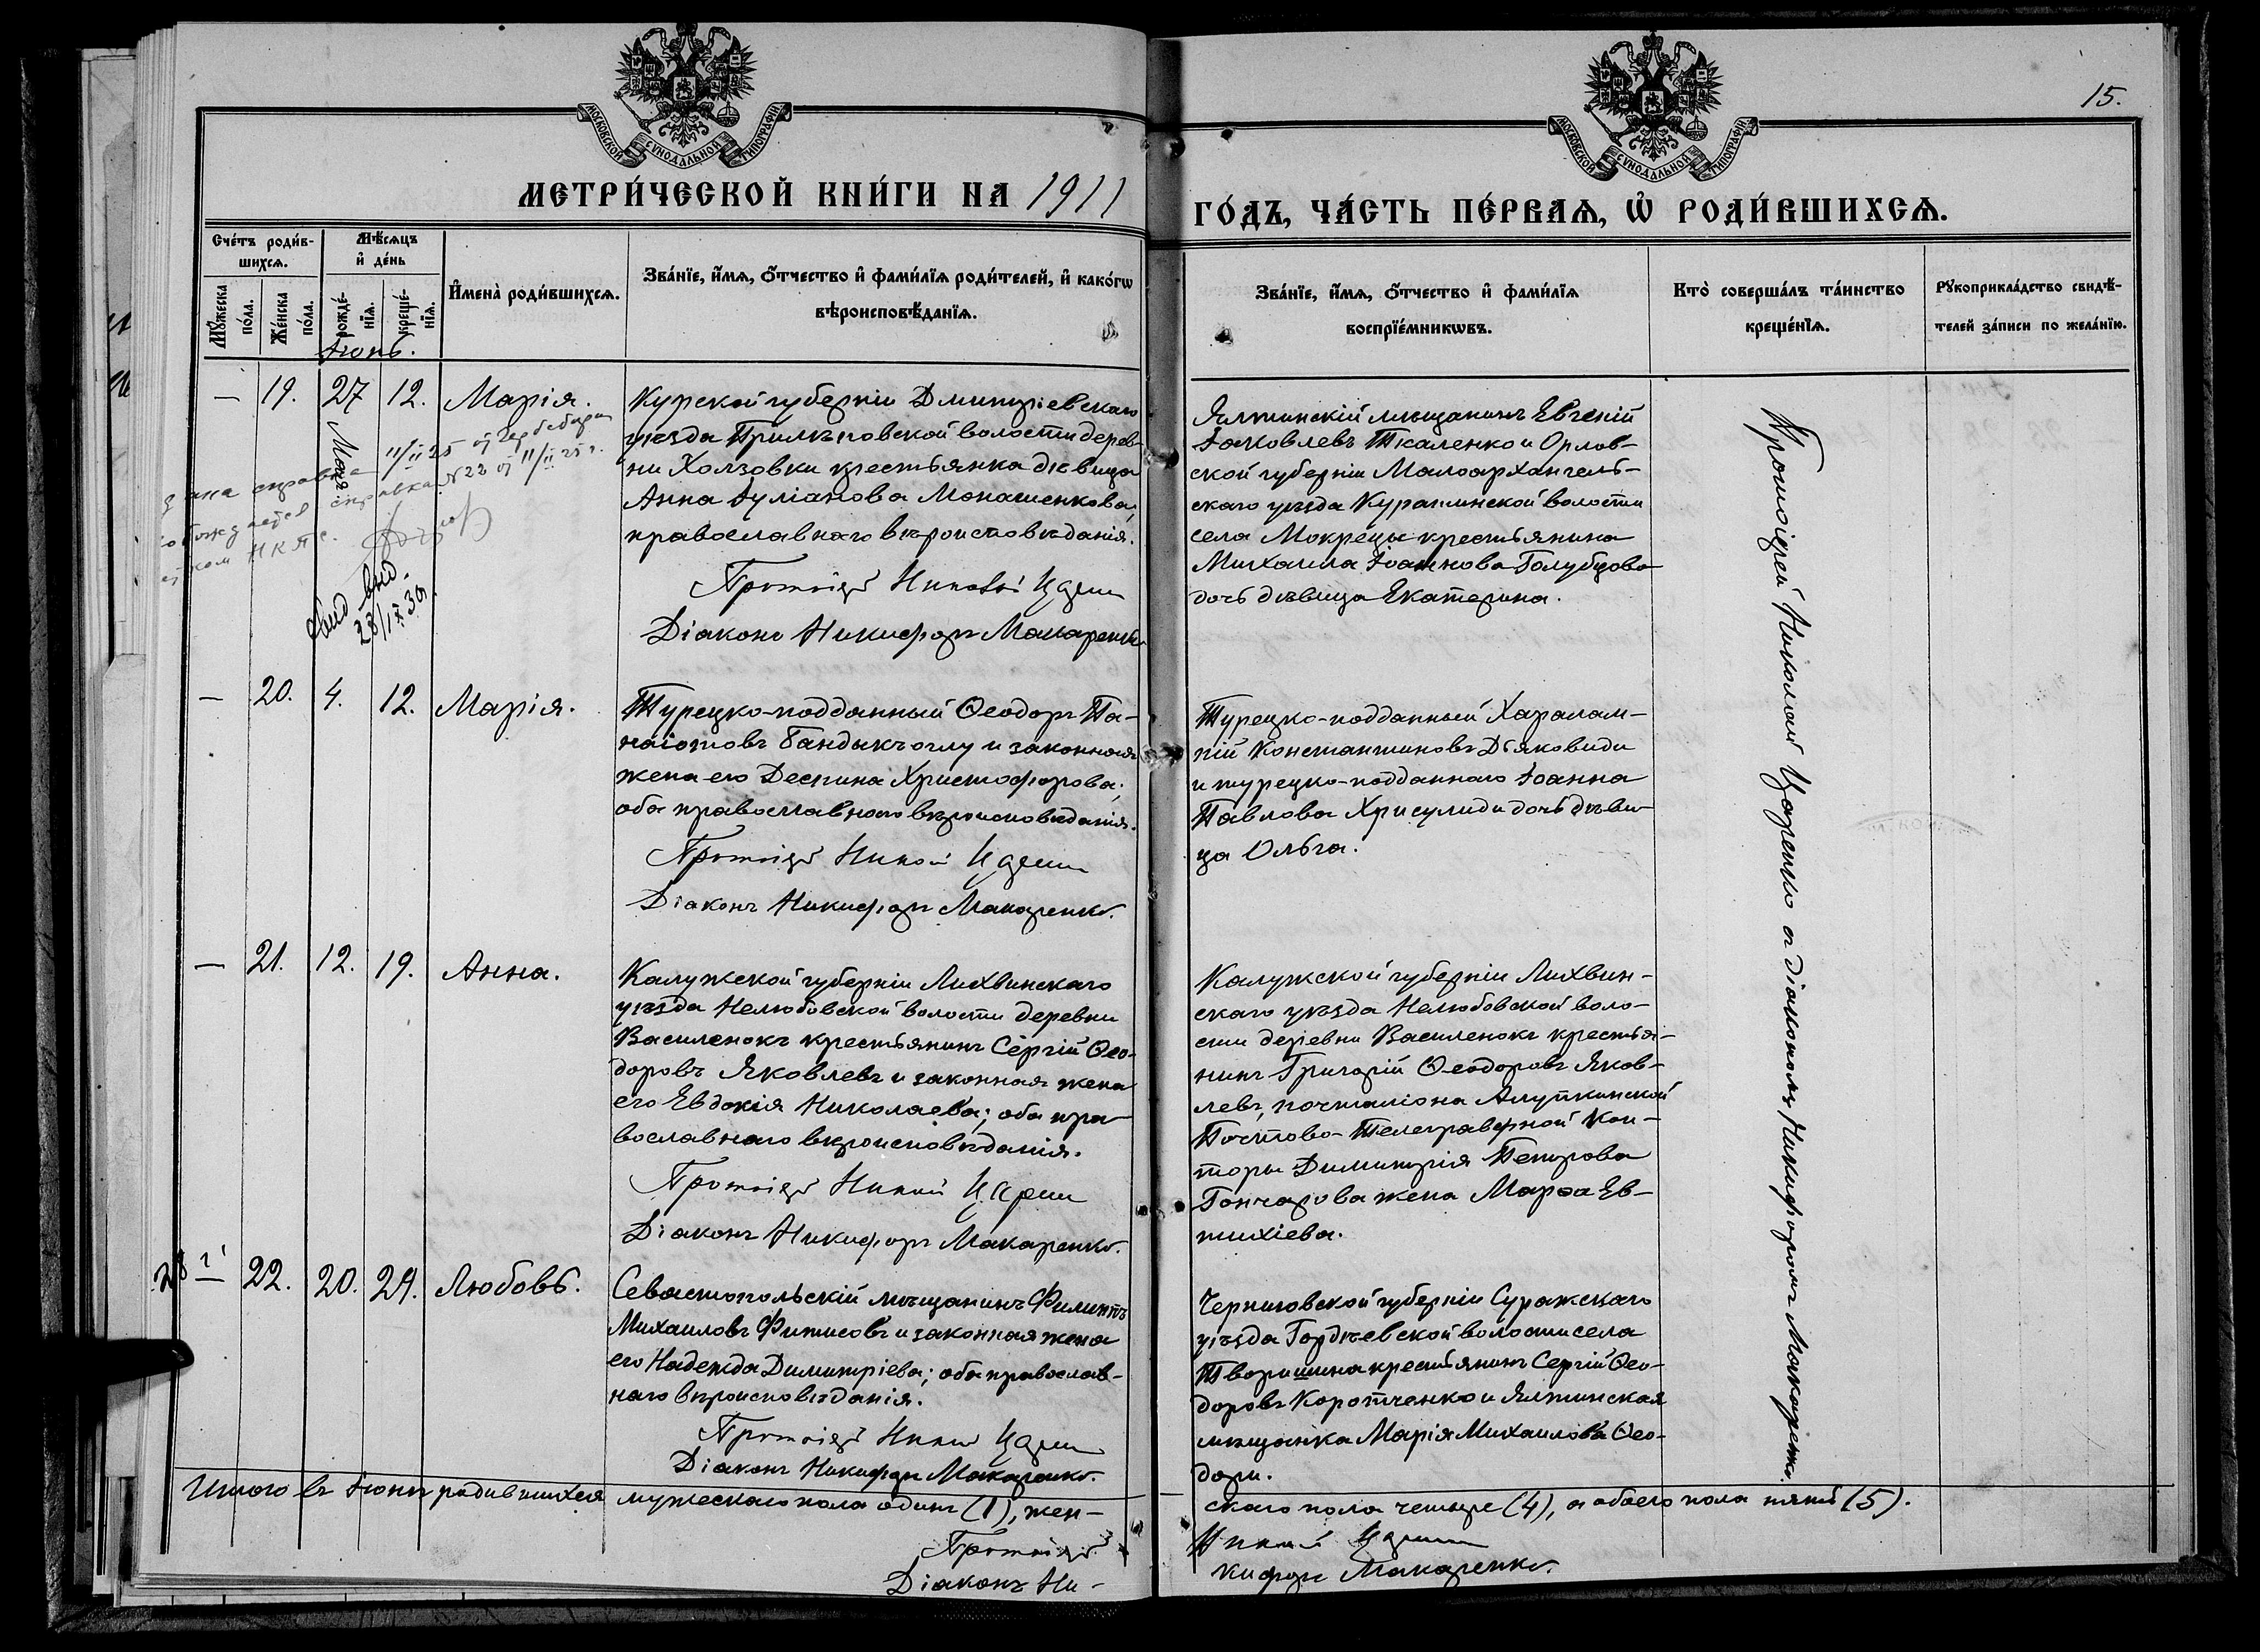 15.
МОСКОВСКОЙ СУНОДАЛЬНОЙ ТИПОГРАФІИ
МОСКОВСКОЙ СУНОДАЛЬНОЙ ТИПОГРАФІИ
МЕТРИ́ЧЕСКОЙ КНИ́ГИ НА 1911
ГО́ДЪ, ЧА́СТЬ ПЕ́РВАѦ, Ѡ РОДИ́ВШИХСѦ.
Сче́тъ роди́в-
шихсѧ.
Мѣ́сѧцъ
и де́нь
Мꙋ́жеска
по́ла.
Же́нска
по́ла.
рожде́-
нїѧ.
креще́-
нїѧ.
Имена̀ роди́вшихсѧ.
Зва́нїе, и́мѧ, ѻ́тчество и фами́лїѧ роди́телей, и како́гѡ
вѣроисповѣ́данїѧ.
Зва́нїе, и́мѧ, ѻ́тчество и фами́лїѧ
воспрїе́мникѡвъ.
Кто̀ соверша́лъ та́инство
креще́нїѧ.
Рꙋкоприкла́дство свидѣ́-
телей за́писи по жела́нїю.
Іюнь.
— 19. 27 12. Марія.
Мая
11/II 25
справка
справка № 23 от 11/II 25 г.
НКПС.
28/IX 30
Курской губерніи Дмитріевскаго
уѣзда Прилѣповской волости дерев-
ни Холзовки крестьянка дѣвица
Анна Іуліанова Монашенкова,
православнаго вѣроисповѣданія.
Протоіерей Николай Царенко
Діаконъ Никифоръ Макаренко
Ялтинскій мѣщанинъ Евгеній
Іаковлевъ Ткаленко и Орлов-
ской губерніи Малоархангель-
скаго уѣзда Куракинской волости
села Мокрецы крестьянина
Михаила Іоаннова Голубцова
дочь дѣвица Екатерина.
— 20. 4. 12. Марія.
Турецко-подданный Ѳеодоръ Па-
наіотовъ Бандыкъ оглу и законная
жена его Деспина Христофорова;
оба православнаго вѣроисповѣданія.
Протоіерей Николай Царенко
Діаконъ Никифоръ Макаренко.
Турецко-подданный Харалам-
пій Константиновъ Дьяковиди
и турецко-подданнаго Іоанна
Павлова Хрисулиди дочь дѣви-
ца Ольга.
— 21. 12. 19. Анна.
Калужской губерніи Лихвинскаго
уѣзда Нелюбовской волости деревни
Василенокъ крестьянинъ Сергій Ѳео-
доровъ Яковлевъ и законная жена
его Евдокія Николаева; оба пра-
вославнаго вѣроисповѣданія.
Протоіерей Николай Царенко
Діаконъ Никифоръ Макаренко.
Калужской губерніи Лихвин-
скаго уѣзда Нелюбовской воло-
сти деревни Василенокъ крестья-
нинъ Григорій Ѳеодоровъ Яков-
левъ, почталіона Алупкинской
Почтово-Телеграфной Кон-
торы Димитрія Петрова
Гончарова жена Марѳа Ев-
тихіева.
— 22. 20. 24. Любовь.
Севастопольскій мѣщанинъ Филиппъ
Михаиловъ Фитисовъ и законная жена
его Надежда Димитріева; оба православ-
наго вѣроисповѣданія.
Протоіерей Николай Царенко
Діаконъ Никифоръ Макаренко.
Черниговской губерніи Суражскаго
уѣзда Гордѣевской волости села
Творишина крестьянинъ Сергій Ѳео-
доровъ Коротченко и Ялтинская
мѣщанка Марія Михаилова Ѳео-
дори.
Протоіерей Николай Царенко съ діакономъ Никифоромъ Макаренко.
Итого въ Іюнѣ родившихся мужескаго пола одинъ (1), жен-
скаго пола четыре (4), а обоего пола пять (5).
Протоіерей Николай Царенко
Діаконъ Ни-
кифоръ Макаренко.